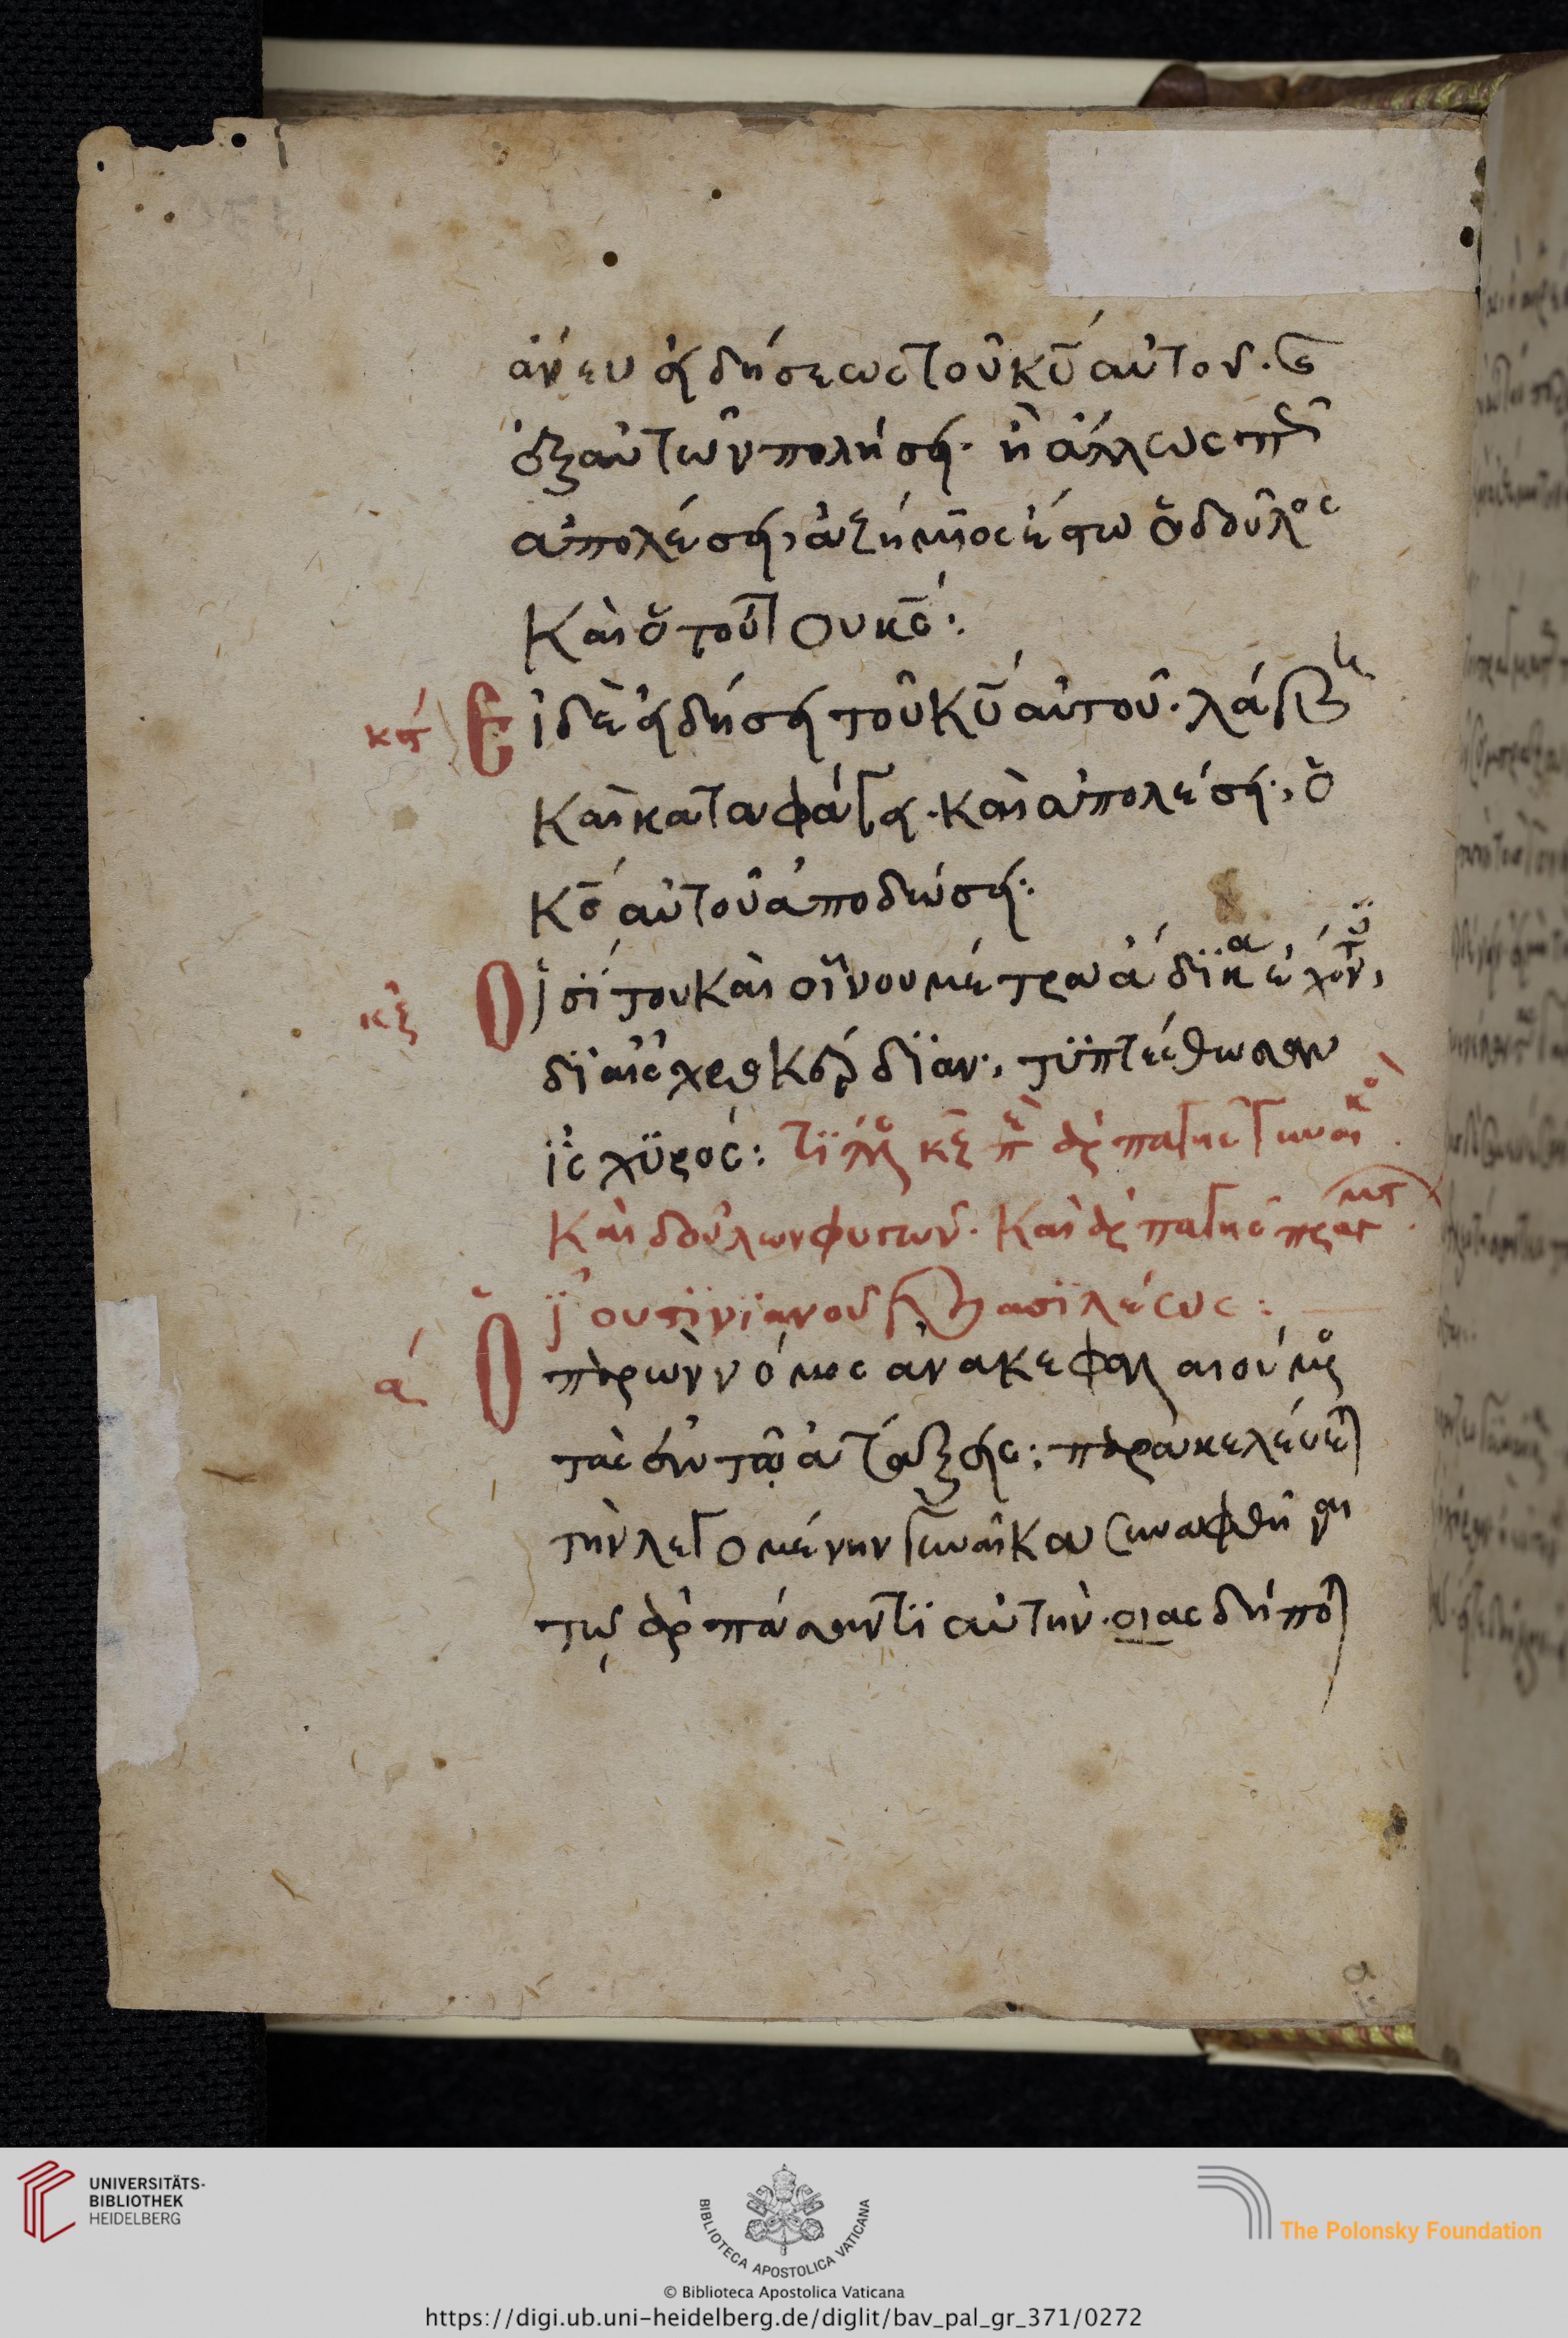 ἄνευ εἰδήσεως τοῦ κῡ αὐτοῦ. καὶ
ἐξ αὐτῶν πολήσει. ἢ ἄλλως
ἀπολέσει, ἀζήμιος ἔστω ὁ δοῦλος
καὶ ὁ τούτου κς̄:
κς Εἰ δὲ εἰδήσει τοῦ κῡ αὐτοῦ. λάβη
καὶ καταφάγει. καὶ ἀπολέσει, ὁ
κς̄ αὐτοῦ ἀποδώσει:
κζ Οἱ σίτου καὶ οἴνου μέτρα ἄδϊκα ἔχοντ,
δϊ αἰσχροκερδΐαν, τϋπτέσθωσαν
ἰσχϋρός: τΐτλος κζ περὶ ἁρπαγῆς γυναικὸ
καὶ δούλων φυγῶν. καὶ ἁρπαγῆς πράγματ
ϊουστϊνϊανοῦ βασϊλέως:
α Ὁ παρὼν νόμος ἀνακεφαλαιούμε
τὰς ἐν τῶ ἀτάξεις: παρακελεύε
τὴν λεγομένην γυναῖκα συναφθῆναι
τῷ ἁρπάσαντϊ αὐτὴν. οιας δήπο
UNIVERSITÄTS-
BIBLIOTHEK
HEIDELBERG
BIBLIOTECA APOSTOLICA VATICANA
The Polonsky Foundation
© Biblioteca Apostolica Vaticana
https://digi.ub.uni-heidelberg.de/diglit/bav_pal_gr_371/0272